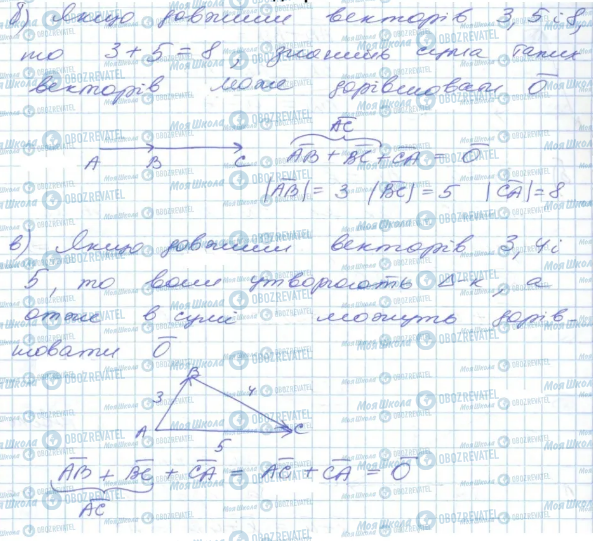 б) Якщо довжини векторів 3, 5 і 8,
то 3 + 5 = 8, значить сума таких
векторів може дорівнювати 0̅
A B C A̅C̅ A̅B̅ + B̅C̅ + C̅A̅ = 0̅
|A̅B̅| = 3 |B̅C̅| = 5 |C̅A̅| = 8
в) Якщо довжини векторів 3, 4 і
5, то вони утворюють Δ-к, а
отже в сумі можуть дорів-
нювати 0̅
B
3 4
A C
5
A̅B̅ + B̅C̅ + C̅A̅ = A̅C̅ + C̅A̅ = 0̅
A̅C̅
Моя Школа
OBOZREVATEL